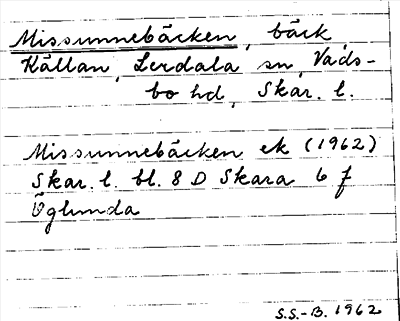 Missunnebäcken, bäck,
Källan, Lerdala sn, Vads-
bo hd, Skar. l.
Missunnebäcken ek (1962)
Skar. l. bl. 8 D Skara 6 f
Öglunda
S.S.-B. 1962